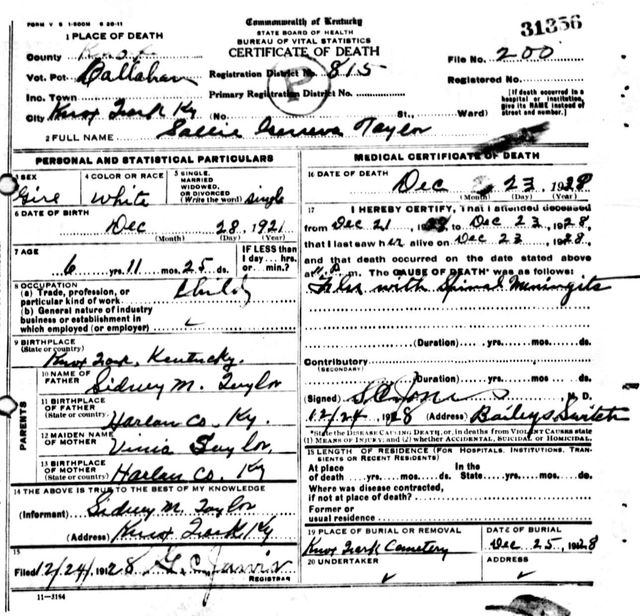 FORM V S 1-500M 6 20-11
Commonwealth of Kentucky
STATE BOARD OF HEALTH
BUREAU OF VITAL STATISTICS
CERTIFICATE OF DEATH
31356
1 PLACE OF DEATH
County Knox
Vot. Pct. Callahan
Inc. Town
City Knox Fork Ky (No. St., Ward)
Registration District No. 815
Primary Registration District No.
P
File No. 200
Registered No.
[If death occurred in a hospital or institution, give its NAME instead of street and number.]
2 FULL NAME Sallie Geneva Taylor
PERSONAL AND STATISTICAL PARTICULARS
3 SEX Girl
4 COLOR OR RACE White
5 SINGLE, MARRIED WIDOWED, OR DIVORCED (Write the word) Single
6 DATE OF BIRTH
Dec 28, 1921
(Month) (Day) (Year)
7 AGE
6 yrs. 11 mos. 25 ds.
IF LESS than 1 day ... hrs. or ... min.?
8 OCCUPATION
(a) Trade, profession, or particular kind of work Child
(b) General nature of industry business or establishment in which employed (or employer)
9 BIRTHPLACE
(State or country)
Knox Fork, Kentucky.
PARENTS
10 NAME OF FATHER Sidney M. Taylor
11 BIRTHPLACE OF FATHER (State or country) Harlan Co. Ky.
12 MAIDEN NAME OF MOTHER Taylor
13 BIRTHPLACE OF MOTHER (State or country) Harlan Co. Ky
14 THE ABOVE IS TRUE TO THE BEST OF MY KNOWLEDGE
(Informant) Sidney M. Taylor
(Address) Knox Fork Ky
15
Filed 12/24/1928 Jarvis
REGISTRAR
11-3184
MEDICAL CERTIFICATE OF DEATH
16 DATE OF DEATH
Dec 23, 1928
(Month) (Day) (Year)
17 I HEREBY CERTIFY, That I attended deceased
from Dec 21, to Dec 23, 1928,
that I last saw her alive on Dec 23, 1928,
and that death occurred on the date stated above
at P. m. The CAUSE OF DEATH* was as follows:
with Spinal Meningits
(Duration) yrs. mos. ds.
Contributory
(SECONDARY)
(Duration) yrs. mos. ds.
(Signed) M. D.
12/24 1928 (Address) Baileys Switch
*State the DISEASE CAUSING DEATH, or, in deaths from VIOLENT CAUSES state (1) MEANS OF INJURY; and (2) whether ACCIDENTAL, SUICIDAL or HOMICIDAL.
18 LENGTH OF RESIDENCE (FOR HOSPITALS, INSTITUTIONS, TRANSIENTS OR RECENT RESIDENTS)
At place of death yrs. mos. ds. In the State yrs. mos. ds.
Where was disease contracted, if not at place of death?
Former or usual residence
19 PLACE OF BURIAL OR REMOVAL
Knox Fork Cemetery
DATE OF BURIAL
Dec 25, 1928
20 UNDERTAKER
ADDRESS